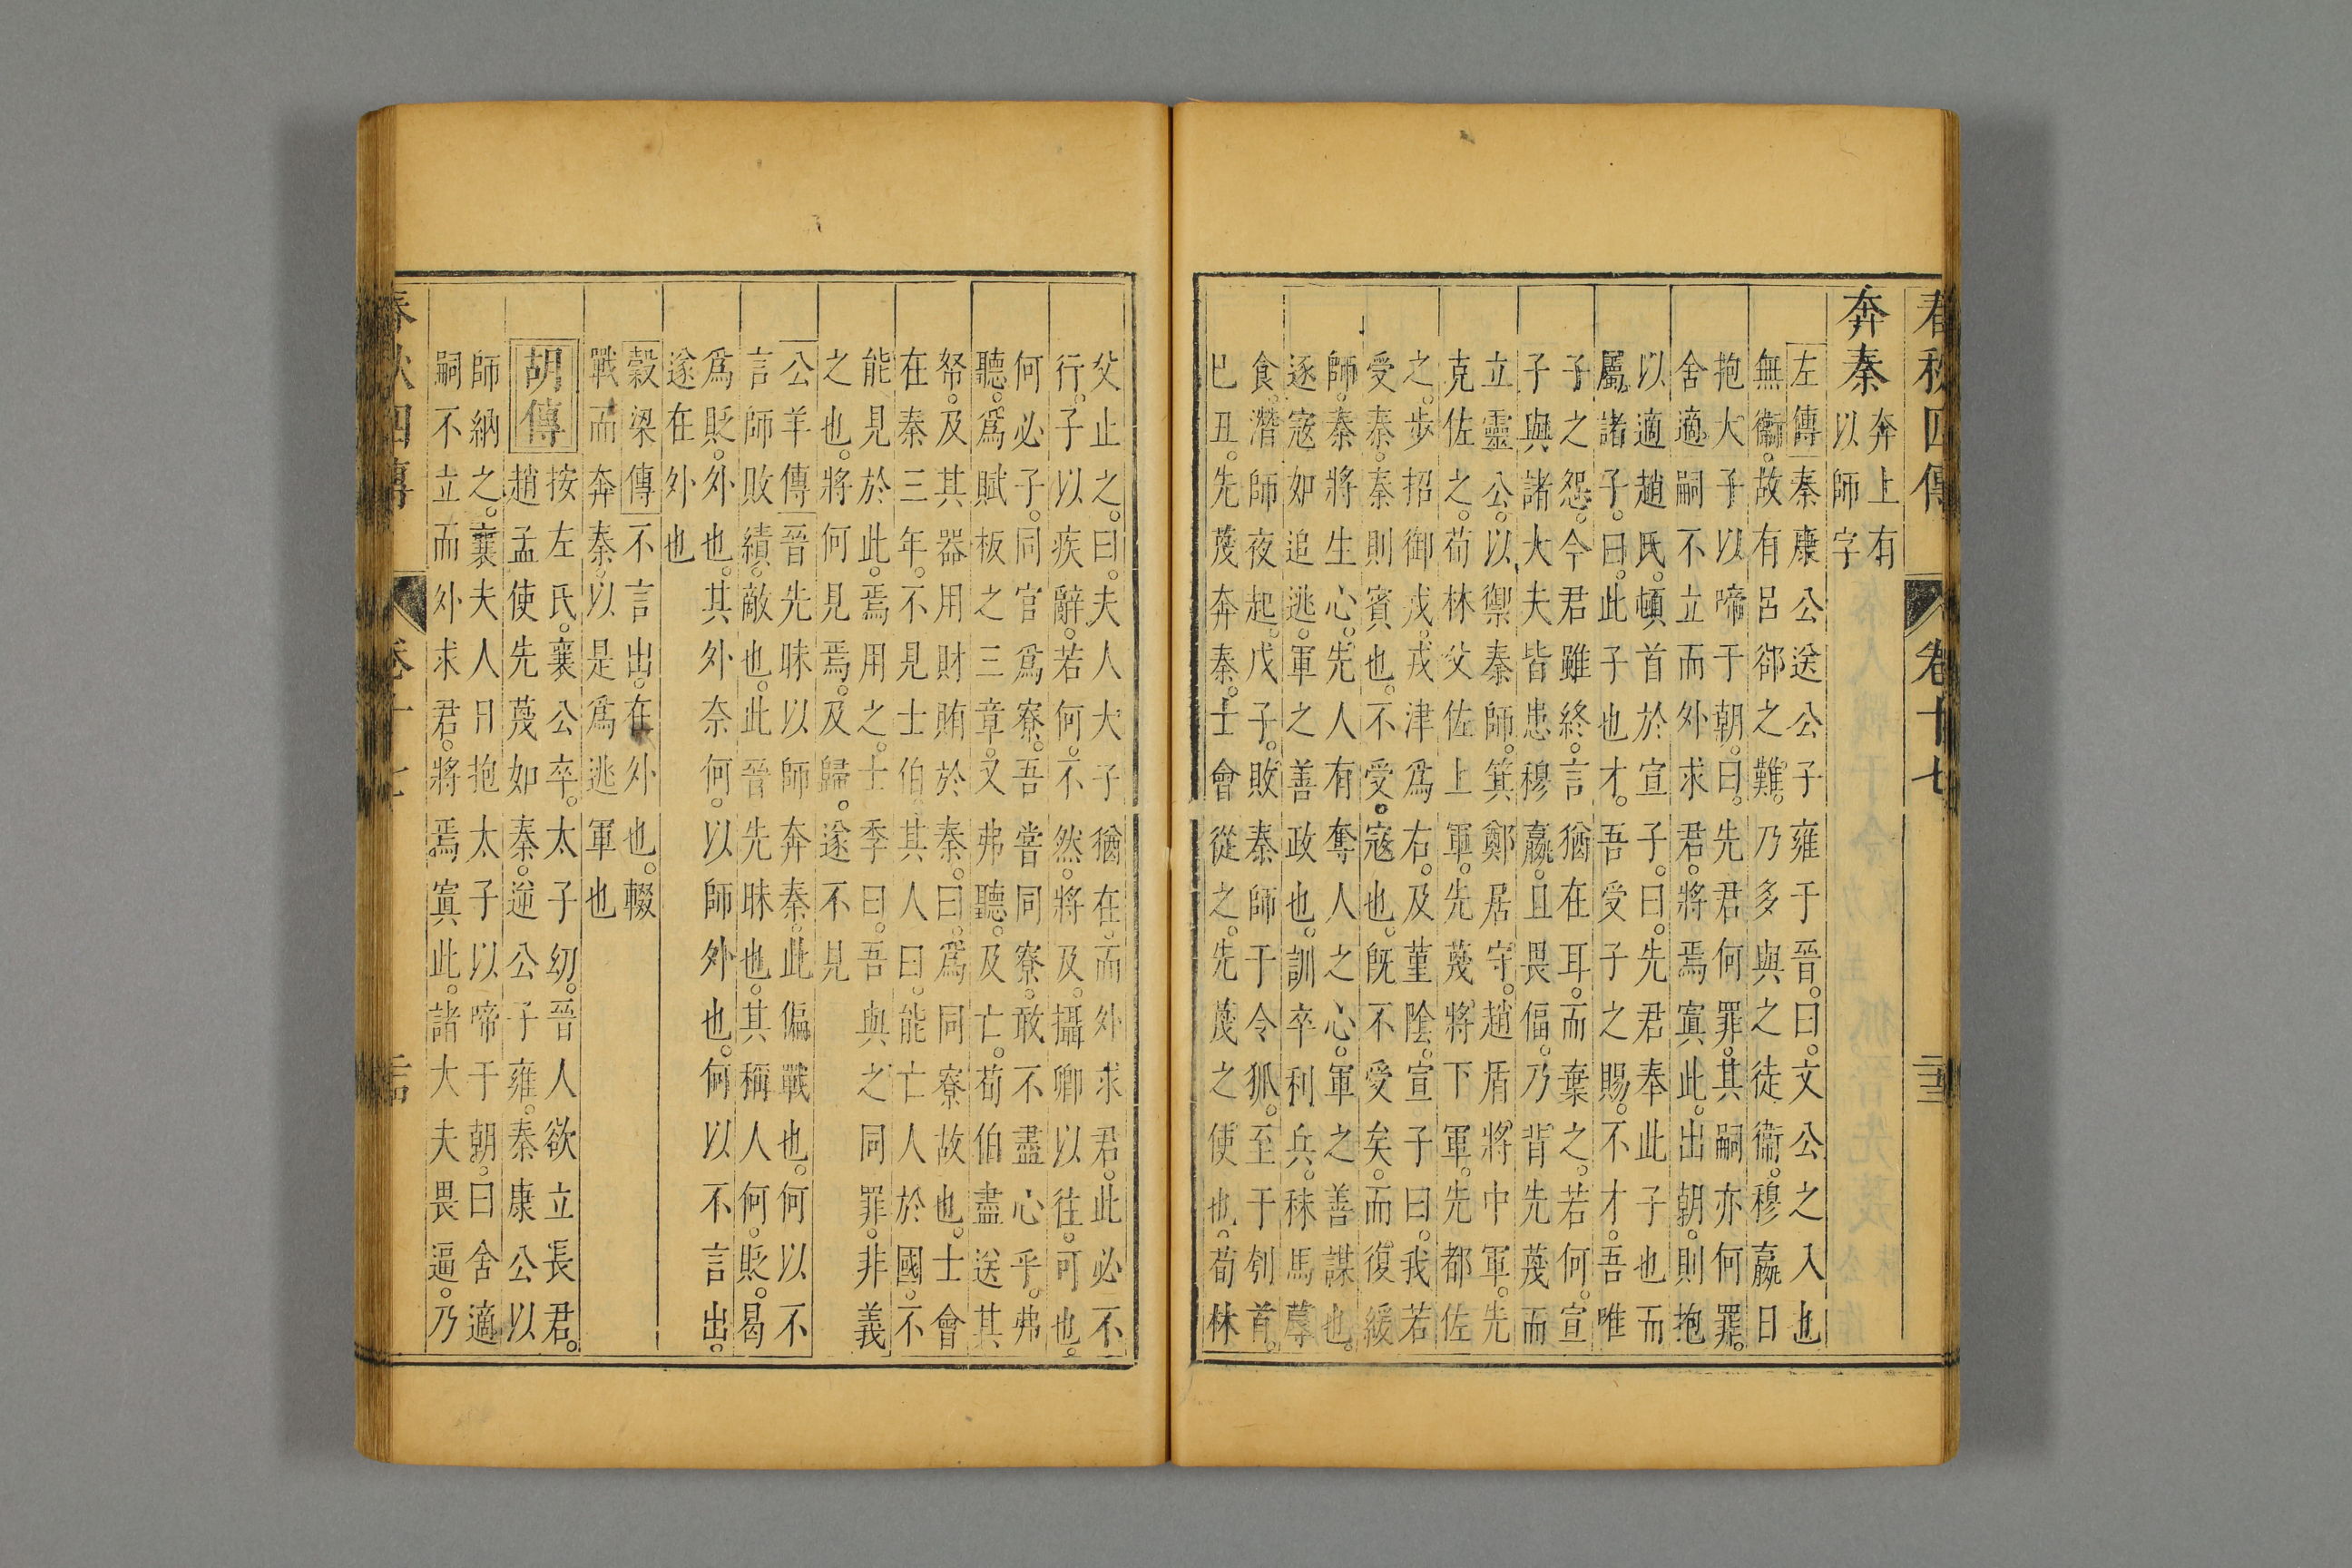 春秋四傳 卷十七
奔秦 奔上有
以師字
左傳秦康公送公子雍于晉。曰。文公之入也
無衞。故有呂郤之難。乃多與之徒衞。穆嬴日
抱大子以啼于朝。曰。先君何罪。其嗣亦何罪。
舍適嗣不立而外求君。將焉寘此。出朝。則抱
以適趙氏。頓首於宣子。曰。先君奉此子也而
屬諸子。曰。此子也才。吾受子之賜。不才。吾唯
子之怨。今君雖終。言猶在耳。而棄之。若何。宣
子與諸大夫皆患穆嬴。且畏偪。乃背先蔑而
立靈公。以禦秦師。箕鄭居守。趙盾將中軍。先
克佐之。荀林父佐上軍。先蔑將下軍。先都佐
之。步招御戎。戎津爲右。及菫陰。宣子曰。我若
受秦。秦則賓也。不受。寇也。旣不受矣。而復緩
師。秦將生心。先人有奪人之心。軍之善謀也。
逐寇如追逃。軍之善政也。訓卒利兵。秣馬蓐
食。潛師夜起。戊子。敗秦師于令狐。至于刳首。
巳丑。先蔑奔秦。士會從之。先蔑之使也。荀林
父止之。曰。夫人大子猶在。而外求君。此必不
行。子以疾辭。若何。不然。將及。攝卿以往。可也。
何必子。同官爲寮。吾嘗同寮。敢不盡心乎。弗
聽。爲賦板之三章。又弗聽。及亡。荀伯盡送其
帑。及其器用財賄於秦。曰。爲同寮故也。士會
在秦三年。不見士伯。其人曰。能亡人於國。不
能見於此。焉用之。士季曰。吾與之同罪。非義
之也。將何見焉。及歸。遂不見
公羊傳晉先眛以師奔秦。此偏戰也。何以不
言師敗績。敵也。此晉先眛也。其稱人何。貶。曷
爲貶。外也。其外奈何。以師外也。何以不言出。
遂在外也
穀梁傳不言出。在外也。輟
戰而奔秦。以是爲逃軍也
胡傳 按左氏。襄公卒。太子幼。晉人欲立長君。
趙孟使先蔑如秦。逆公子雍。秦康公以
師納之。襄夫人日抱太子以啼于朝。曰舍適
嗣不立而外求君。將焉寘此。諸大夫畏逼。乃
春秋四傳